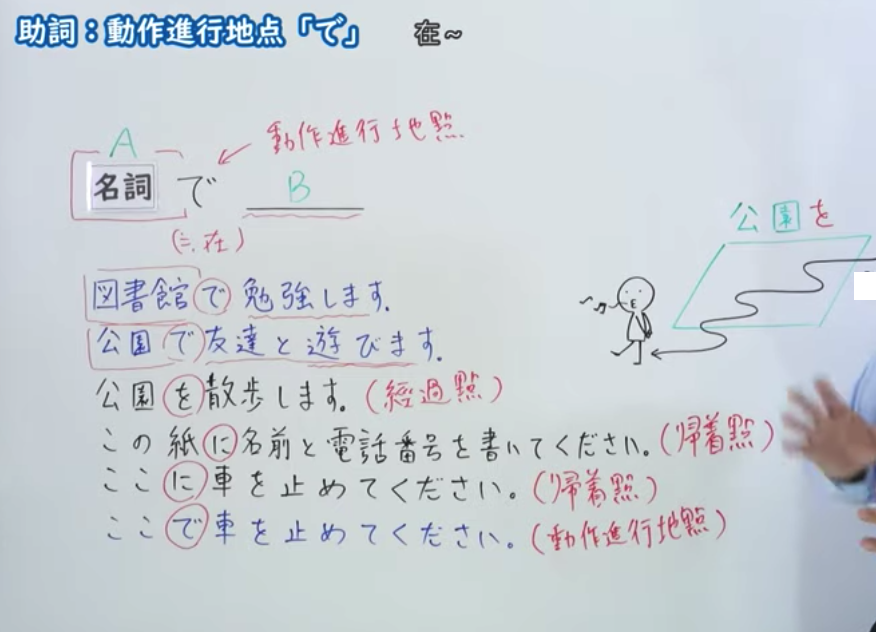 助詞：動作進行地点「で」 在~
A 動作進行地點
名詞 で B
(≒在)
公園を
図書館で勉強します。
公園で友達と遊びます。
公園を散歩します。(經過點)
この紙に名前と電話番号を書いてください。(帰着點)
ここに車を止めてください。(帰着點)
ここで車を止めてください。(動作進行地點)